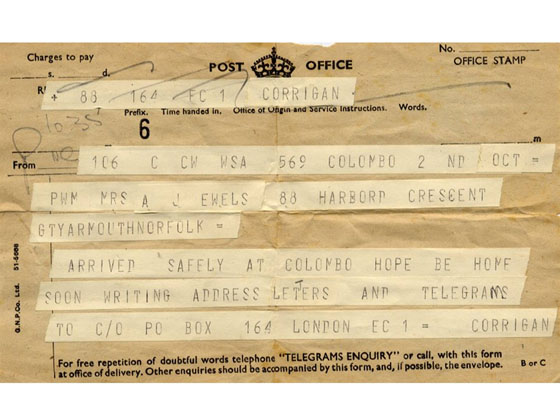 Charges to pay
s. d.
POST OFFICE
No.
OFFICE STAMP
+ 88 164 EC 1 CORRIGAN +
Prefix. Time handed in. Office of Origin and Service Instructions. Words.
6
From
106 C CW WSA 569 COLOMBO 2 ND OCT =
PWM MRS A J EWELS 88 HARBORD CRESCENT
GTYARMOUTHNORFOLK =
ARRIVED SAFELY AT COLOMBO HOPE BE HOME
SOON WRITING ADDRESS LETERS AND TELEGRAMS
TO C/O PO BOX 164 LONDON EC 1 = CORRIGAN
G.N.P.Co. Ltd. 51-5088
For free repetition of doubtful words telephone "TELEGRAMS ENQUIRY" or call, with this form
at office of delivery. Other enquiries should be accompanied by this form, and, if possible, the envelope. B or C